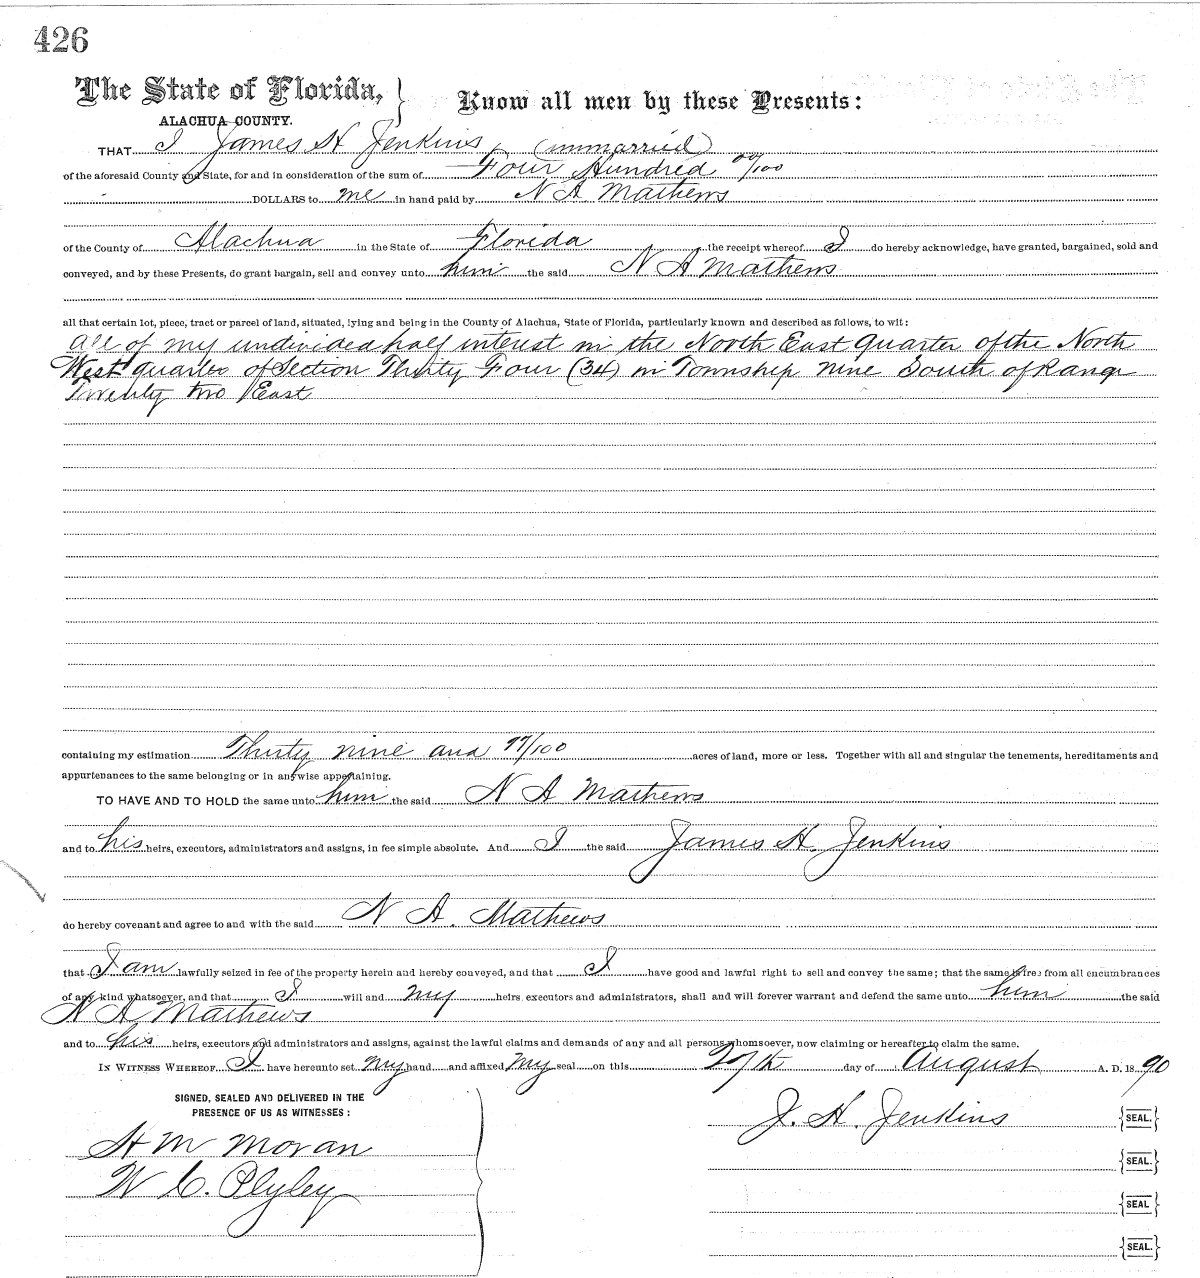 426
The State of Florida,
ALACHUA COUNTY.
Know all men by these Presents:
THAT I James H Jenkins, (unmarried)
of the aforesaid County and State, for and in consideration of the sum of Four Hundred 00/100
DOLLARS to me in hand paid by N A Mathews
of the County of Alachua in the State of Florida the receipt whereof I do hereby acknowledge, have granted, bargained, sold and
conveyed, and by these Presents, do grant bargain, sell and convey unto him the said N A Mathews
all that certain lot, piece, tract or parcel of land, situated, lying and being in the County of Alachua, State of Florida, particularly known and described as follows, to wit:
all of my undivided half interest in the North East Quarter of the North
West quarter of Section Thirty Four (34) in Township nine South of Range
Twenty two East
containing my estimation Thirty nine and 97/100 acres of land, more or less. Together with all and singular the tenements, hereditaments and
appurtenances to the same belonging or in anywise appertaining.
TO HAVE AND TO HOLD the same unto him the said N A Mathews
and to his heirs, executors, administrators and assigns, in fee simple absolute. And I the said James H. Jenkins
do hereby covenant and agree to and with the said N A. Mathews
that I am lawfully seized in fee of the property herein and hereby conveyed, and that I have good and lawful right to sell and convey the same; that the same is free from all encumbrances
of any kind whatsoever, and that I will and my heirs, executors and administrators, shall and will forever warrant and defend the same unto him the said
N A Mathews
and to his heirs, executors and administrators and assigns, against the lawful claims and demands of any and all persons whomsoever, now claiming or hereafter to claim the same.
IN WITNESS WHEREOF I have hereunto set my hand and affixed my seal on this 27th day of August A. D. 1890
SIGNED, SEALED AND DELIVERED IN THE
PRESENCE OF US AS WITNESSES:
H M Moran
W C. Plyley
J. H. Jenkins {SEAL.}
{SEAL.}
{SEAL}
{SEAL.}